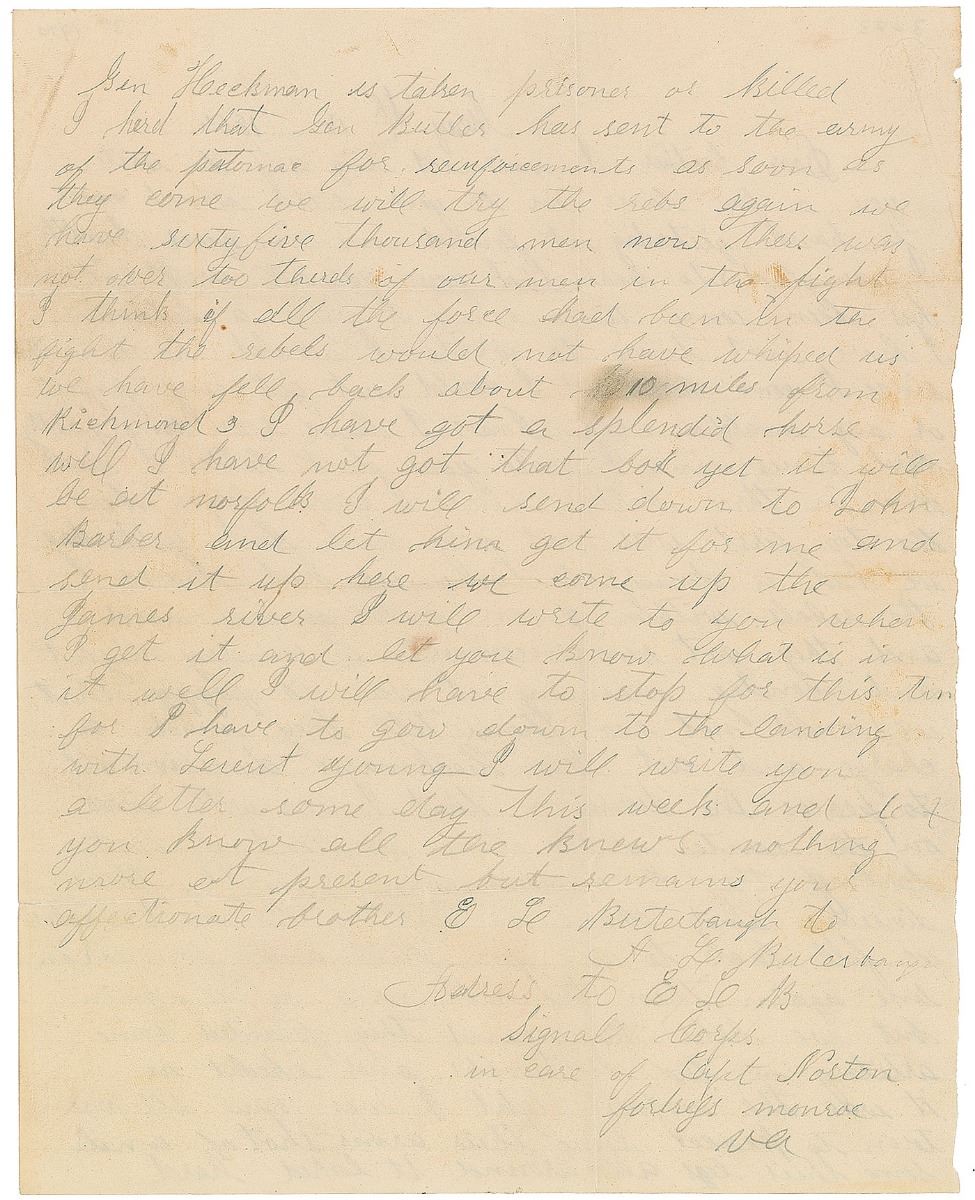 Gen Heckman is taken prisoner or killed
I herd that Gen Butler has sent to the army
of the patomac for reinforcements as soon as
they come we will try the rebs again we
have sixtyfive thousand men now there was
not over too therds of our men in the fight
I think if all the force had been in the
fight the rebels would not have whiped us
we have fell back about 10 miles from
Richmond 3 I have got a splendid horse
well I have not got that box yet it will
be at norfolk I will send down to John
Barber and let him get it for me and
send it up here we come up the
James river I will write to you when
I get it and let you know what is in
it well I will have to stop for this tim
for I have to gow down to the landing
with Leiut young I will write you
a letter some day this week and let
you know all the knews nothing
more at present but remains your
affectionate brother E L Buterbaugh to
A L. Buterbaugh
Adress to E L B
Signal Corps
in care of Capt Norton
fortress monroe
va